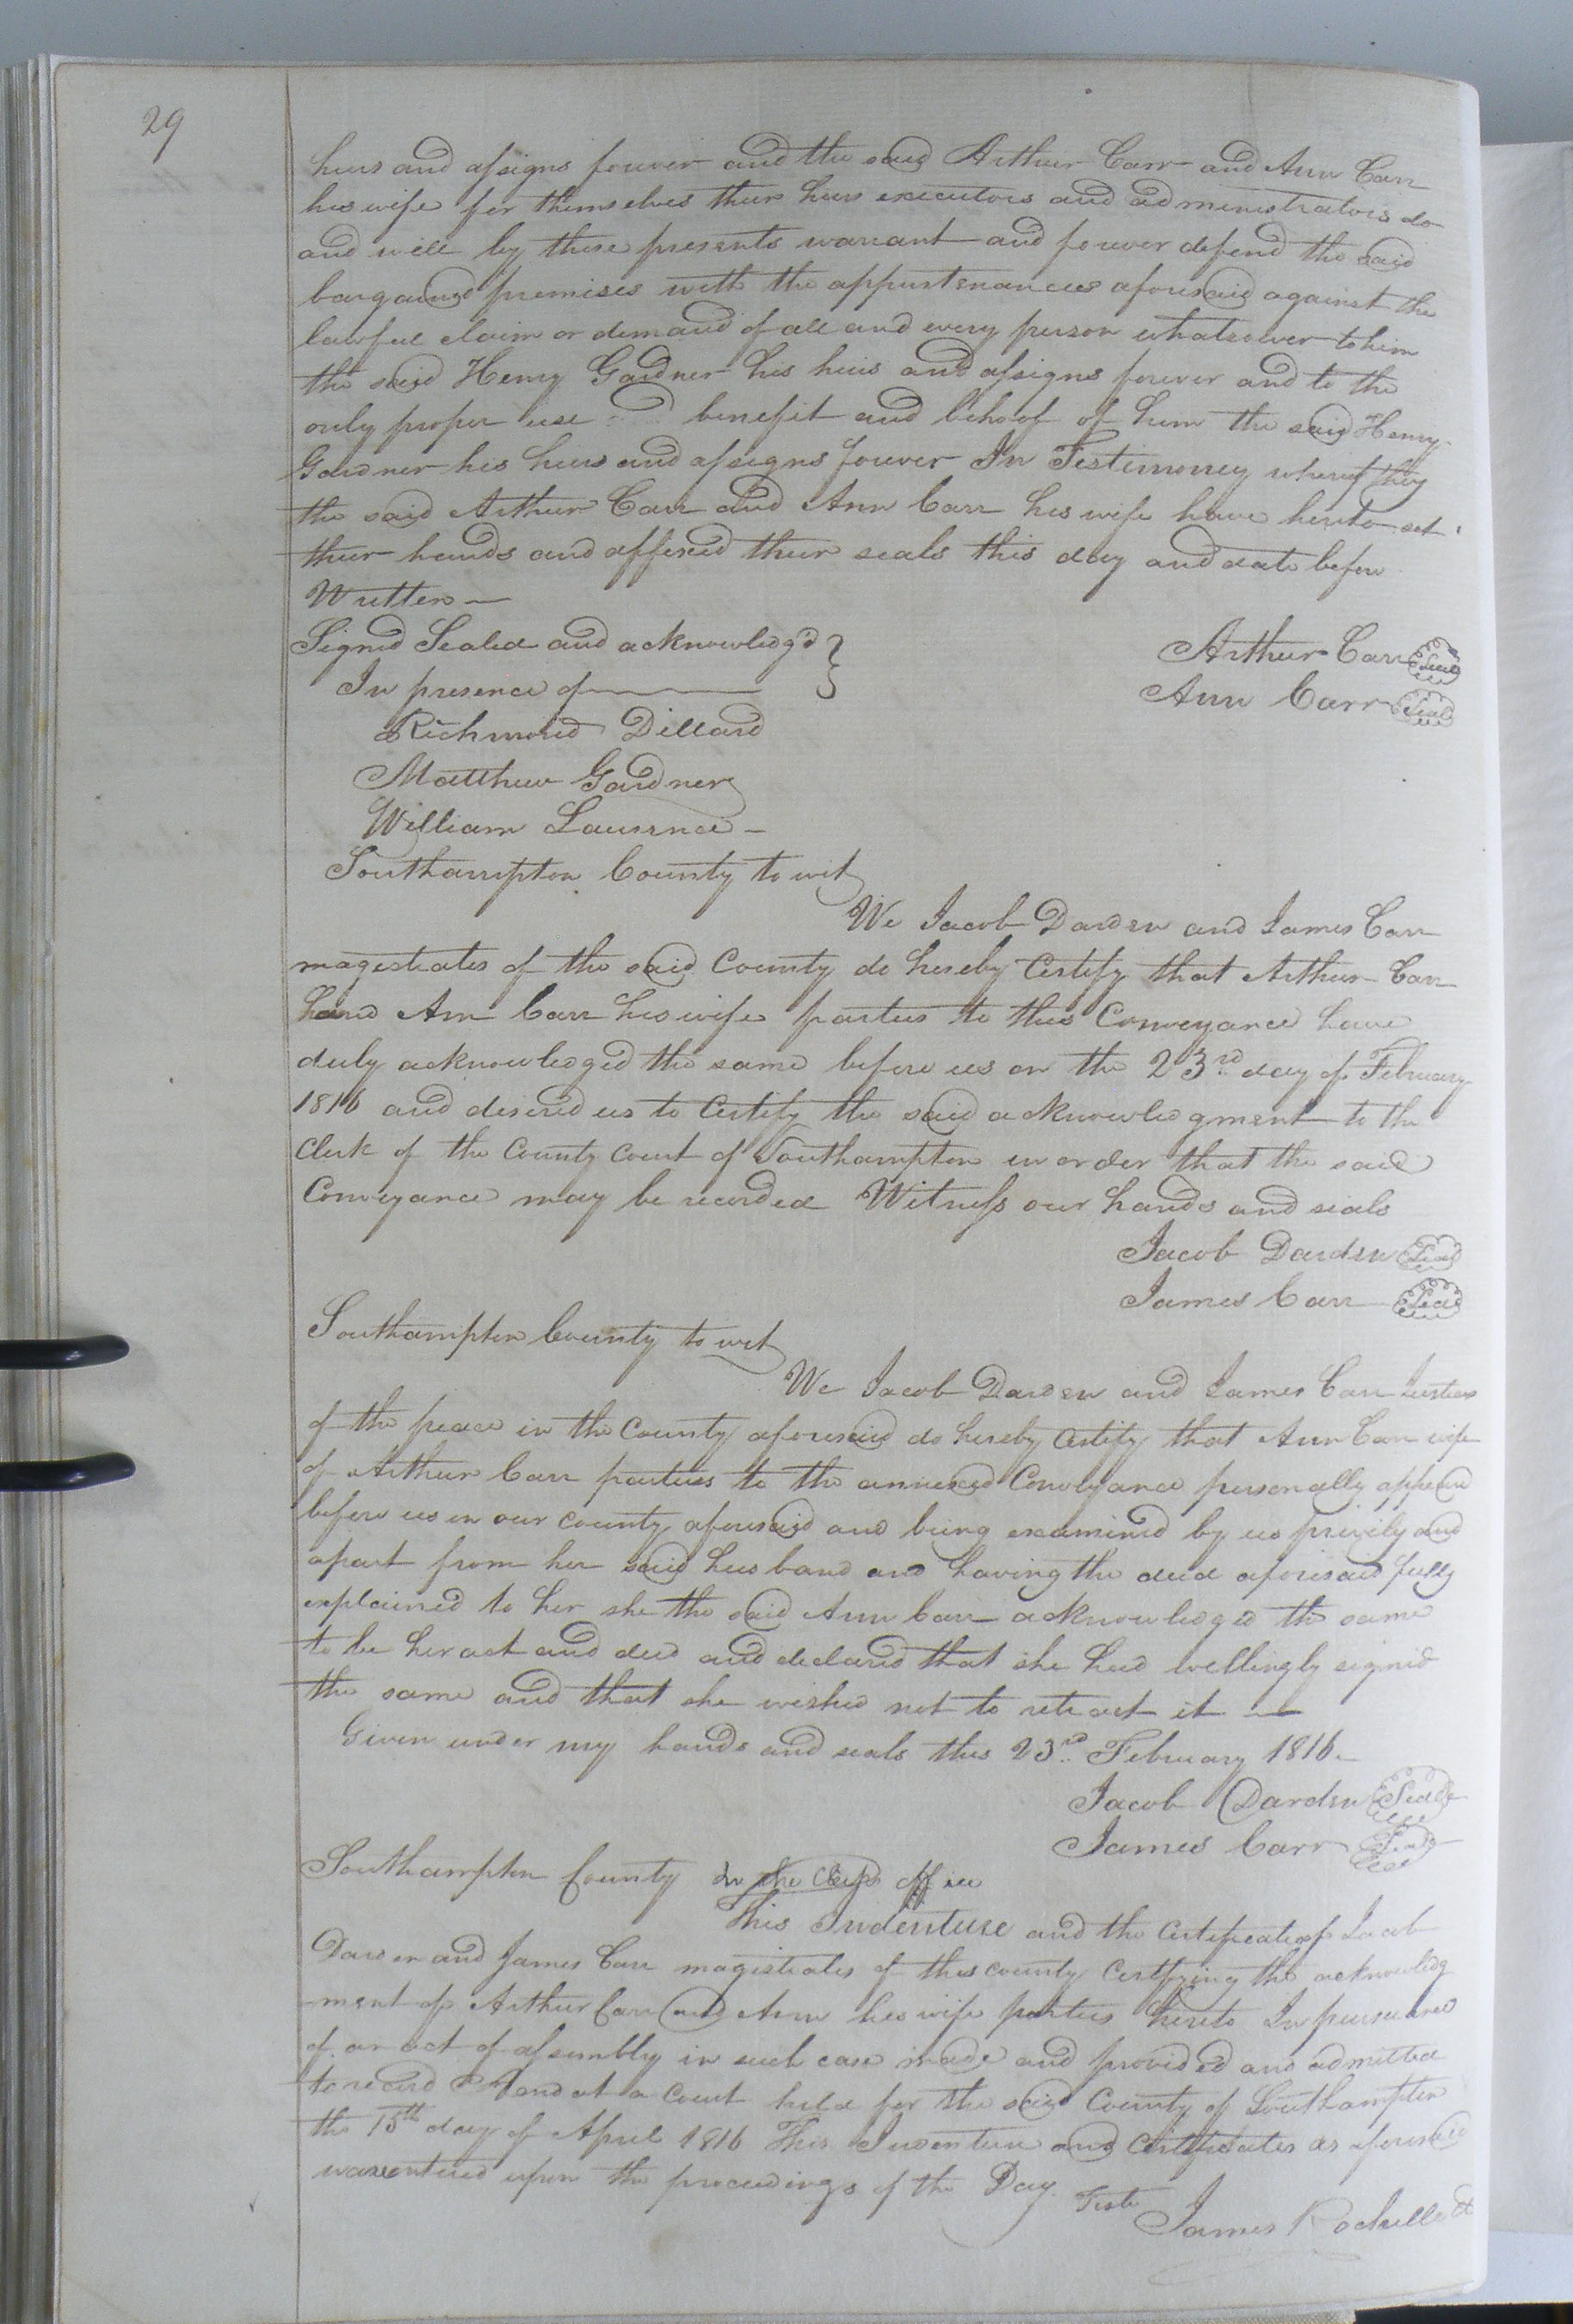 29
heirs and assigns forever and the said Arthur Carr and Ann Carr
his wife for themselves their heirs executors and administrators do
and will by these presents warrant and forever defend the said
bargained premises with the appurtenances aforesaid against the
lawful claim or demand of all and every person whatsoever to him
the said Henry Gardner his heirs and assigns forever and to the
only proper use benefit and behoof of him the said Henry
Gardner his heirs and assigns forever In Testimoney whereof they
the said Arthur Carr and Ann Carr his wife have hereto set
their hands and affixed their seals this day and date before
Written —
Signed Sealed and acknowledg'd }
In presence of
Arthur Carr Seal
Ann Carr Seal
Richmond Dillard
Matthew Gardner
William Lawrence —
Southampton County to wit
We Jacob Darden and James Carr
magestrates of the said County do hereby Certify that Arthur Carr
and Ann Carr his wife parties to this Conveyance have
duly acknowledged the same before us on the 23rd day of February
1816 and desired us to Certify the said acknowledgment to the
Clerk of the County Court of Southampton in order that the said
Conveyance may be recorded Witness our hands and seals
Jacob Darden Seal
James Carr Seal
Southampton County to wit
We Jacob Darden and James Carr Justices
of the peace in the County aforesaid do hereby Certify that Ann Carr wife
of Arthur Carr parties to the annexed Conveyance personally appeared
before us in our county aforesaid and being examined by us privily and
apart from her said husband and having the deed aforesaid fully
explained to her she the said Ann Carr acknowledged the same
to be her act and deed and declared that she had willingly signed
the same and that she wished not to retract it —
Given under my hands and seals this 23rd February 1816 —
Jacob Darden Seal
James Carr Seal
Southampton County In the Clerks office
This Indenture and the Certificate of Jacob
Darden and James Carr magistrates of this county Certfying the acknowledg
-ment of Arthur Carr and Ann his wife parties hereto In pursuance
of an act of assembly in such case made and provided and admitted
to record And at a Court held for the said County of Southampton
the 15th day of April 1816 This Indenture and Certificates as aforesaid
was entered upon the proceedings of the Day.
Teste
James Rochelle Ct